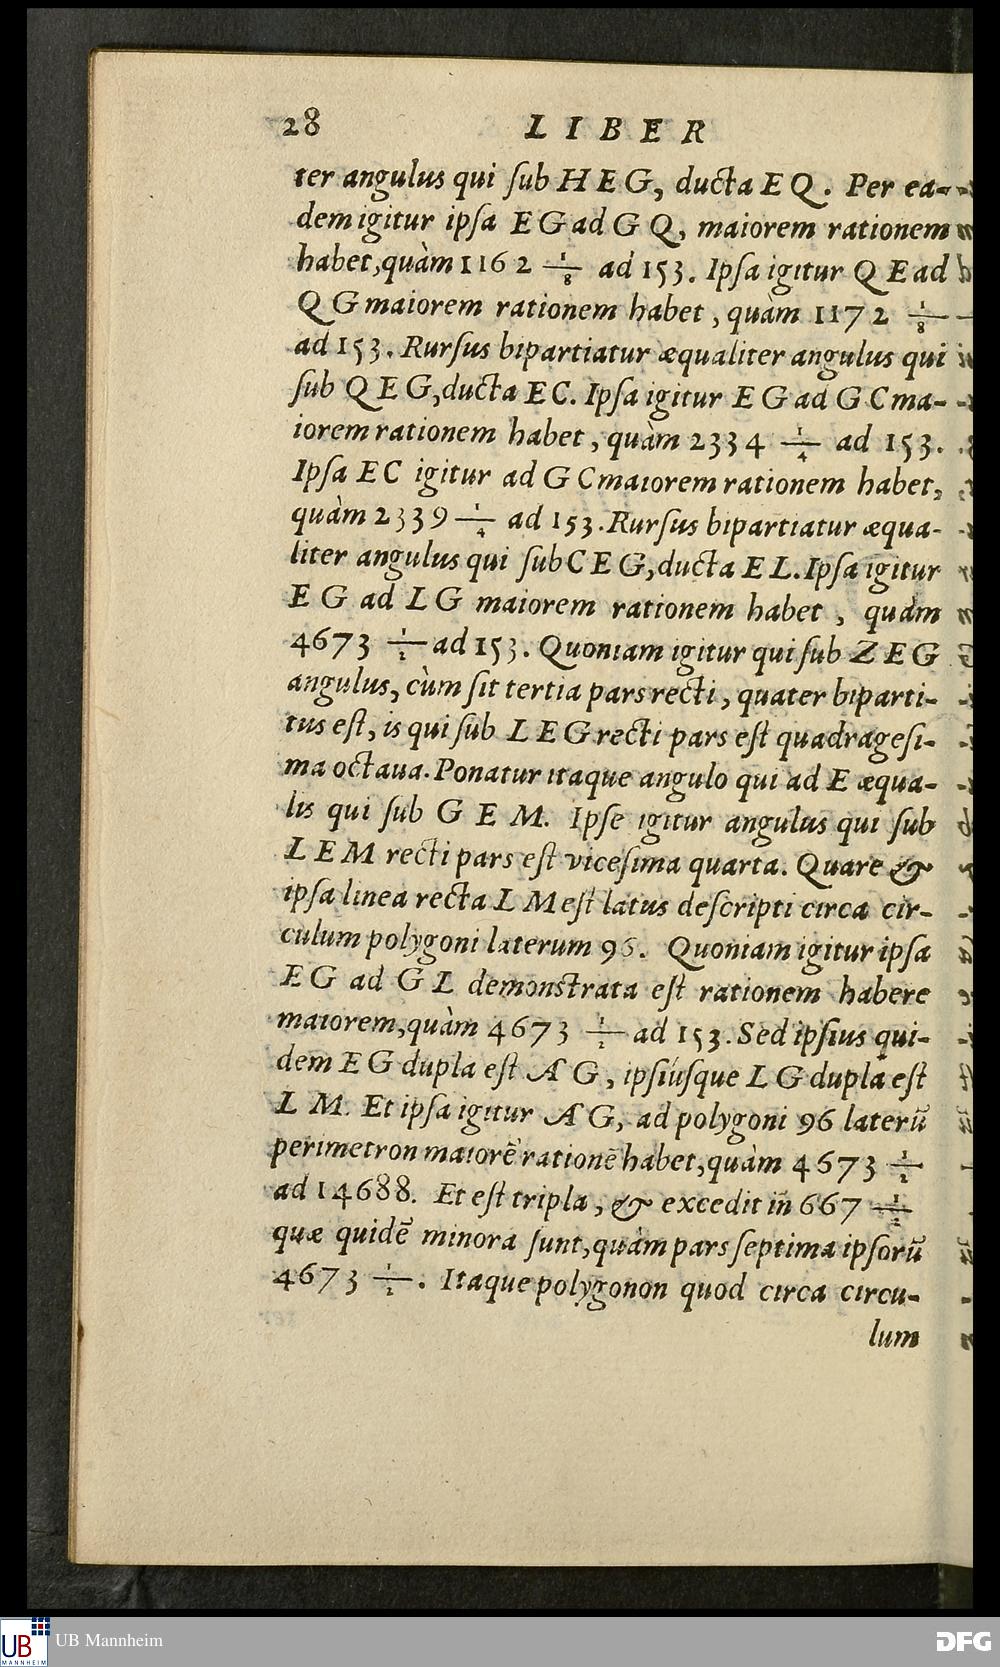 28 LIBER
ter angulus qui ſub H E G, ducta E Q. Per ea-
dem igitur ipſa E G ad G Q, maiorem rationem
habet, quàm 1162 1/8 ad 153. Ipſa igitur Q E ad
Q G maiorem rationem habet, quàm 1172 1/8
ad 153. Rurſus bipartiatur æqualiter angulus qui
ſub Q E G, ducta E C. Ipſa igitur E G ad G C ma-
iorem rationem habet, quàm 2334 1/4 ad 153.
Ipſa E C igitur ad G C maiorem rationem habet,
quàm 2339 1/4 ad 153. Rurſus bipartiatur æqua-
liter angulus qui ſub C E G, ducta E L. Ipſa igitur
E G ad L G maiorem rationem habet, quàm
4673 1/2 ad 153. Quoniam igitur qui ſub Z E G
angulus, cùm ſit tertia pars recti, quater biparti-
tus eſt, is qui ſub L E G recti pars eſt quadrageſi-
ma octaua. Ponatur itaque angulo qui ad E æqua-
lis qui ſub G E M. Ipſe igitur angulus qui ſub
L E M recti pars eſt viceſima quarta. Quare &
ipſa linea recta L M eſt latus deſcripti circa cir-
culum polygoni laterum 96. Quoniam igitur ipſa
E G ad G L demonſtrata eſt rationem habere
maiorem, quàm 4673 1/2 ad 153. Sed ipſius qui-
dem E G dupla eſt A G, ipſiúſque L G dupla eſt
L M. Et ipſa igitur A G, ad polygoni 96 laterũ
perimetron maiorẽ rationẽ habet, quàm 4673 1/2
ad 14688. Et eſt tripla, & excedit iñ 667 1/2
quæ quidẽ minora ſunt, quàm pars ſeptima ipſorũ
4673 1/2. Itaque polygonon quod circa circu-
lum
UB Mannheim
UB
MANNHEIM
DFG